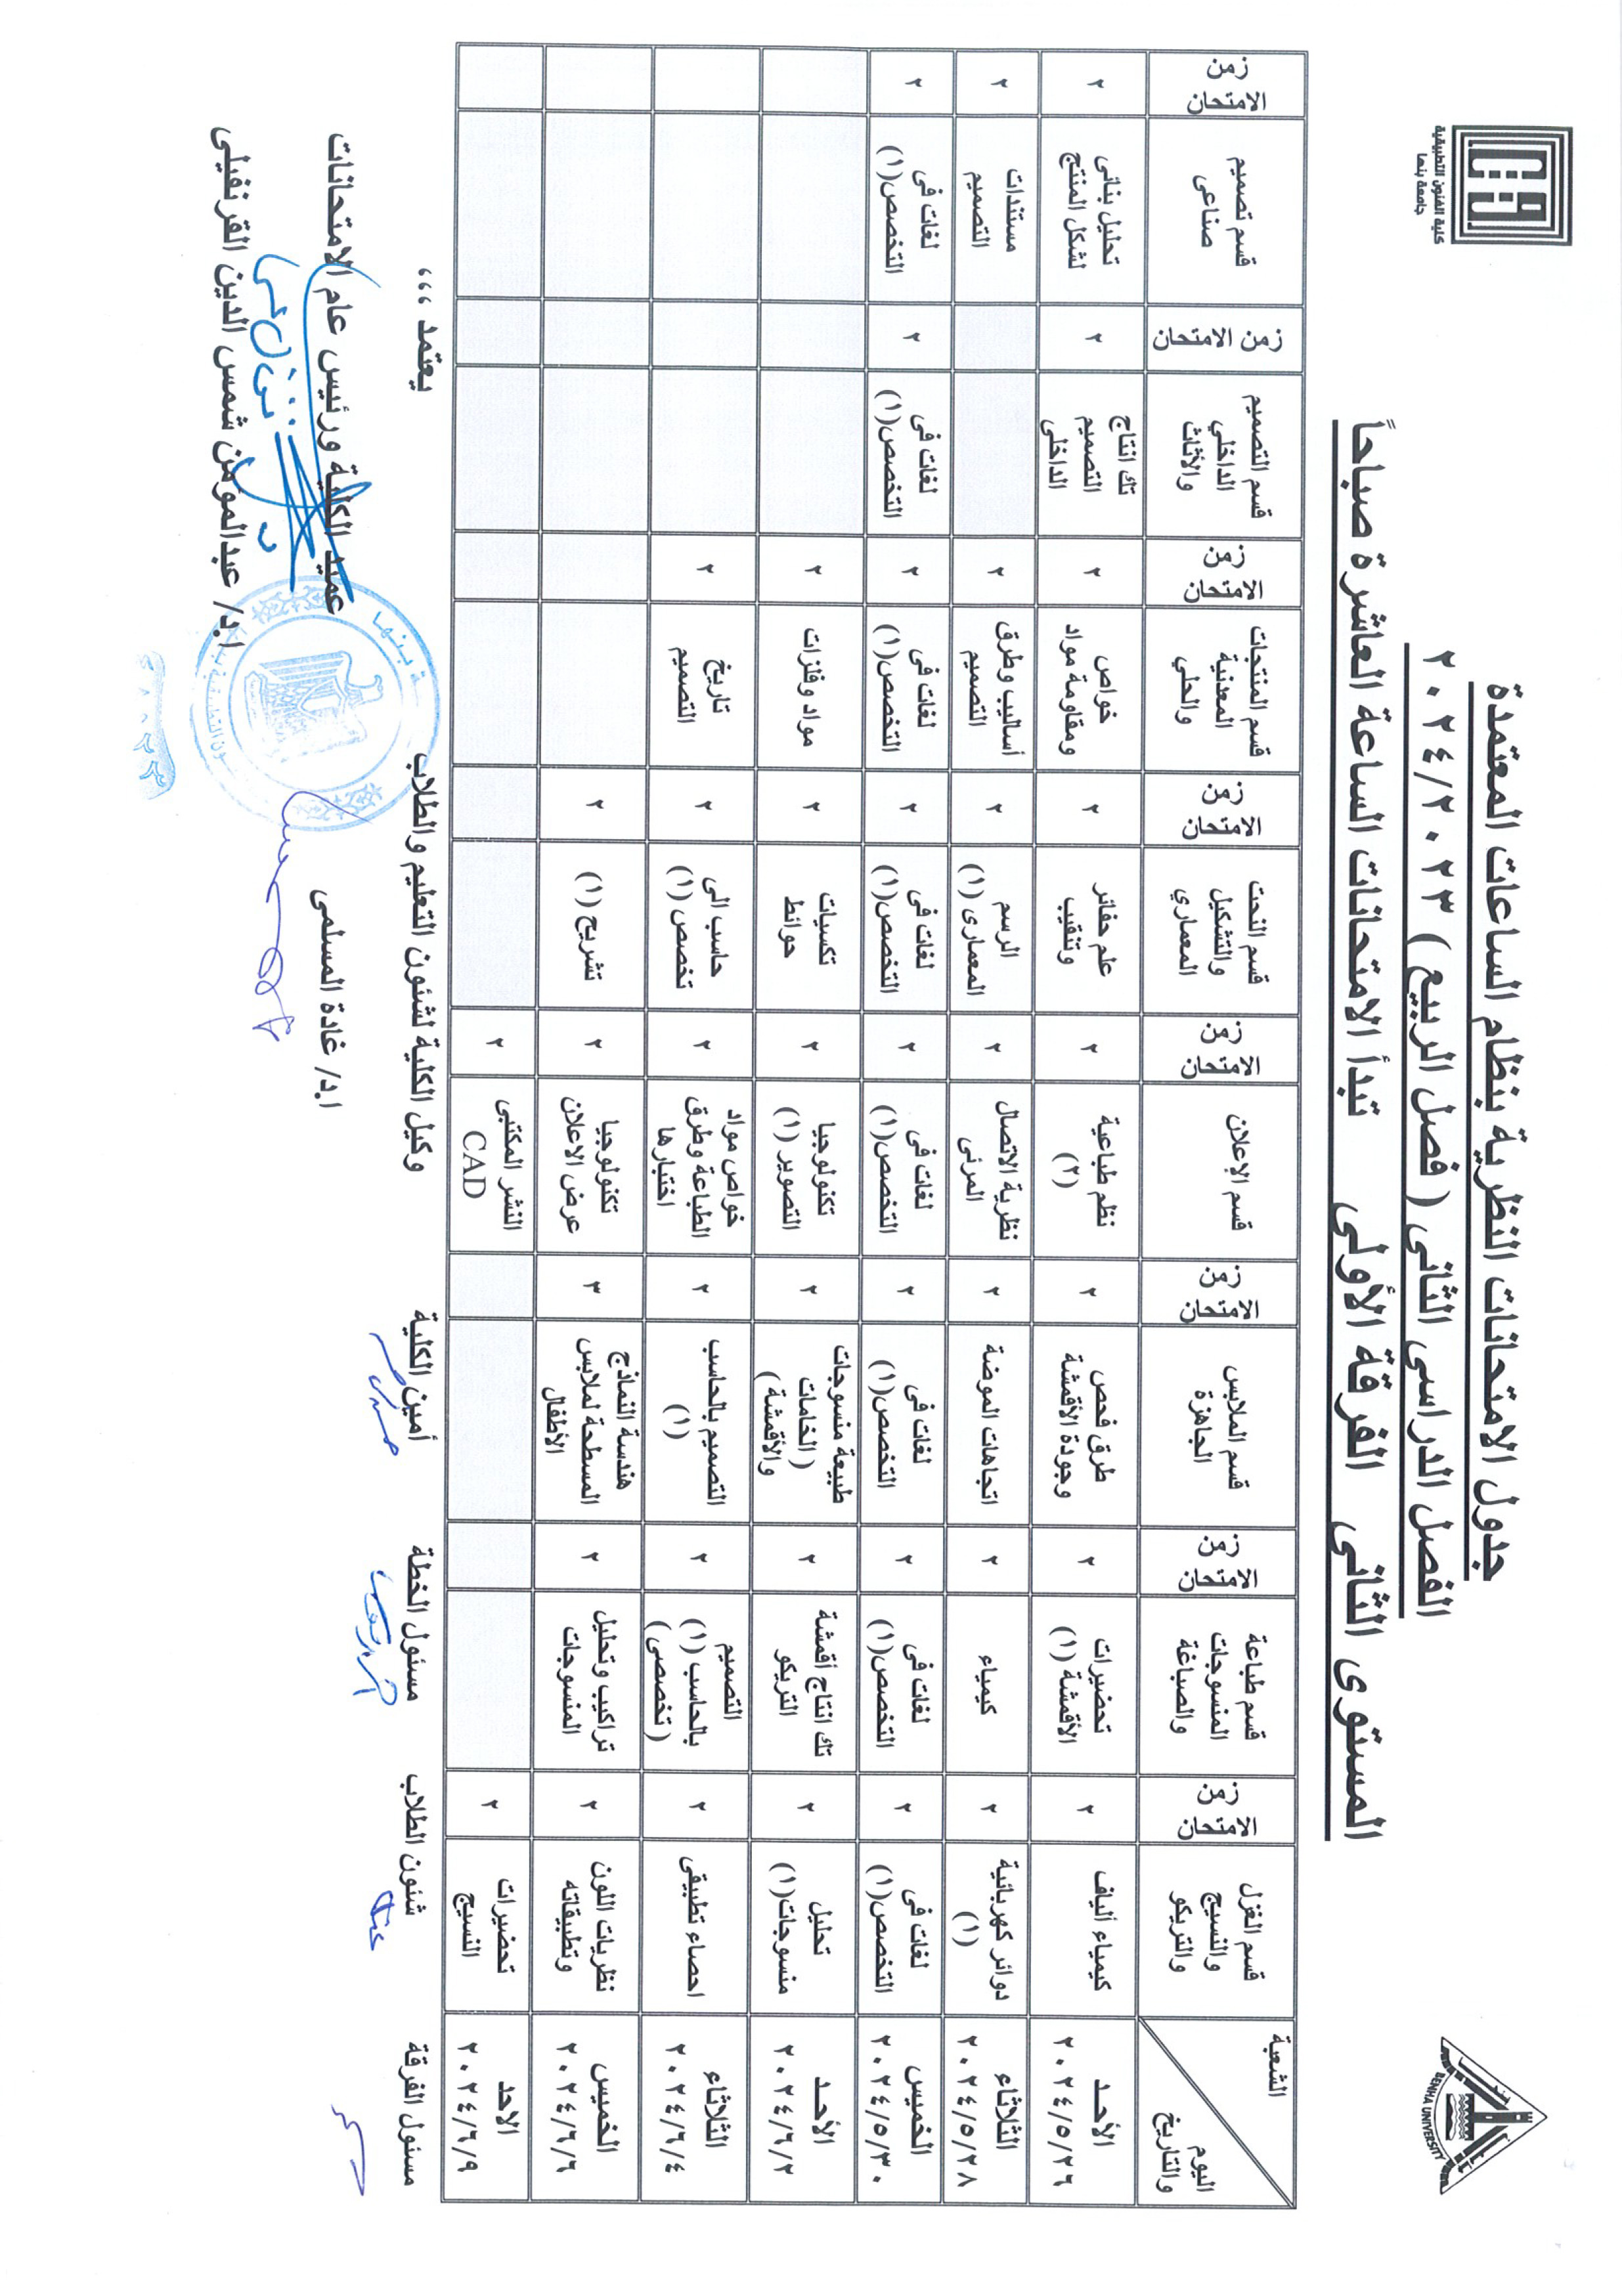 كلية الفنون التطبيقية
جامعة بنها
BENHA UNIVERSITY
جدول الامتحانات النظرية بنظام الساعات المعتمدة
الفصل الدراسى الثانى ( فصل الربيع ) ٢٠٢٤/٢٠٢٣
المستوى الثانى الفرقة الأولى تبدأ الامتحانات الساعة العاشرة صباحاً
الشعبة
اليوم
والتاريخ
قسم الغزل
والنسيج
والتريكو
زمن
الامتحان
قسم طباعة
المنسوجات
والصباغة
زمن
الامتحان
قسم الملابس
الجاهزة
زمن
الامتحان
قسم الإعلان
زمن
الامتحان
قسم النحت
والتشكيل
المعماري
زمن
الامتحان
قسم المنتجات
المعدنية
والحلي
زمن
الامتحان
قسم التصميم
الداخلي
والأثاث
زمن الامتحان
قسم تصميم
صناعى
زمن
الامتحان
الأحد
٢٠٢٤/٥/٢٦
كيمياء ألياف
٢
تحضيرات
الأقمشة (١)
٢
طرق فحص
وجودة الأقمشة
٢
نظم طباعية
(٢)
٢
علم حفائر
وتنقيب
٢
خواص
ومقاومة مواد
٢
تك انتاج
التصميم
الداخلى
٢
تحليل بنائى
لشكل المنتج
٢
الثلاثاء
٢٠٢٤/٥/٢٨
دوائر كهربائية
(١)
٢
كيمياء
٢
اتجاهات الموضة
٢
نظرية الاتصال
المرئى
٢
الرسم
المعمارى (١)
٢
أساليب وطرق
التصميم
٢
مستندات
التصميم
٢
الخميس
٢٠٢٤/٥/٣٠
لغات فى
التخصص(١)
٢
لغات فى
التخصص(١)
٢
لغات فى
التخصص(١)
٢
لغات فى
التخصص(١)
٢
لغات فى
التخصص(١)
٢
لغات فى
التخصص(١)
٢
لغات فى
التخصص(١)
٢
لغات فى
التخصص(١)
٢
الأحد
٢٠٢٤/٦/٢
تحليل
منسوجات(١)
٢
تك انتاج أقمشة
التريكو
٢
طبيعة منسوجات
( الخامات
والأقمشة )
٢
تكنولوجيا
التصوير (١)
٢
تكسيات
حوائط
٢
مواد وفلزات
٢
الثلاثاء
٢٠٢٤/٦/٤
احصاء تطبيقى
٢
التصميم
بالحاسب (١)
( تخصصى )
٢
التصميم بالحاسب
(١)
٢
خواص مواد
الطباعة وطرق
اختبارها
٢
حاسب الى
تخصص (١)
٢
تاريخ
التصميم
٢
الخميس
٢٠٢٤/٦/٦
نظريات اللون
وتطبيقاته
٢
تراكيب وتحليل
المنسوجات
٢
هندسة النماذج
المسطحة لملابس
الأطفال
٣
تكنولوجيا
عرض الاعلان
٢
تشريح (١)
٢
الاحد
٢٠٢٤/٦/٩
تحضيرات
النسيج
٢
النشر المكتبى
CAD
٢
مسئول الفرقة
شئون الطلاب
مسئول الخطة
أمين الكلية
وكيل الكلية لشئون التعليم والطلاب
ا.د/ غادة المسلمى
يعتمد ،،،
عميد الكلية ورئيس عام الامتحانات
ا.د/ عبدالمؤمن شمس الدين القرنفيلى